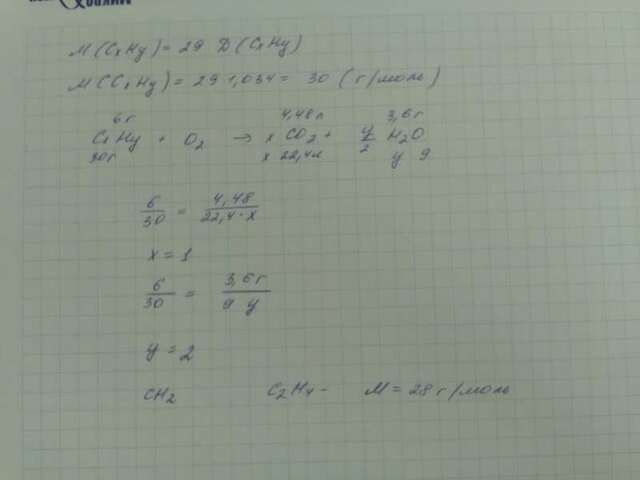 M(CxHy) = 29 D(CxHy)
M(CxHy) = 29·1,034 = 30 (г/моль)
6г 4,48л 3,6г
CxHy + O2 → x CO2 + y/2 H2O
30г x 22,4л y 9
6/30 = 4,48/22,4·x
x = 1
6/30 = 3,6г/9 y
y = 2
CH2 C2H4 - M = 28 г/моль